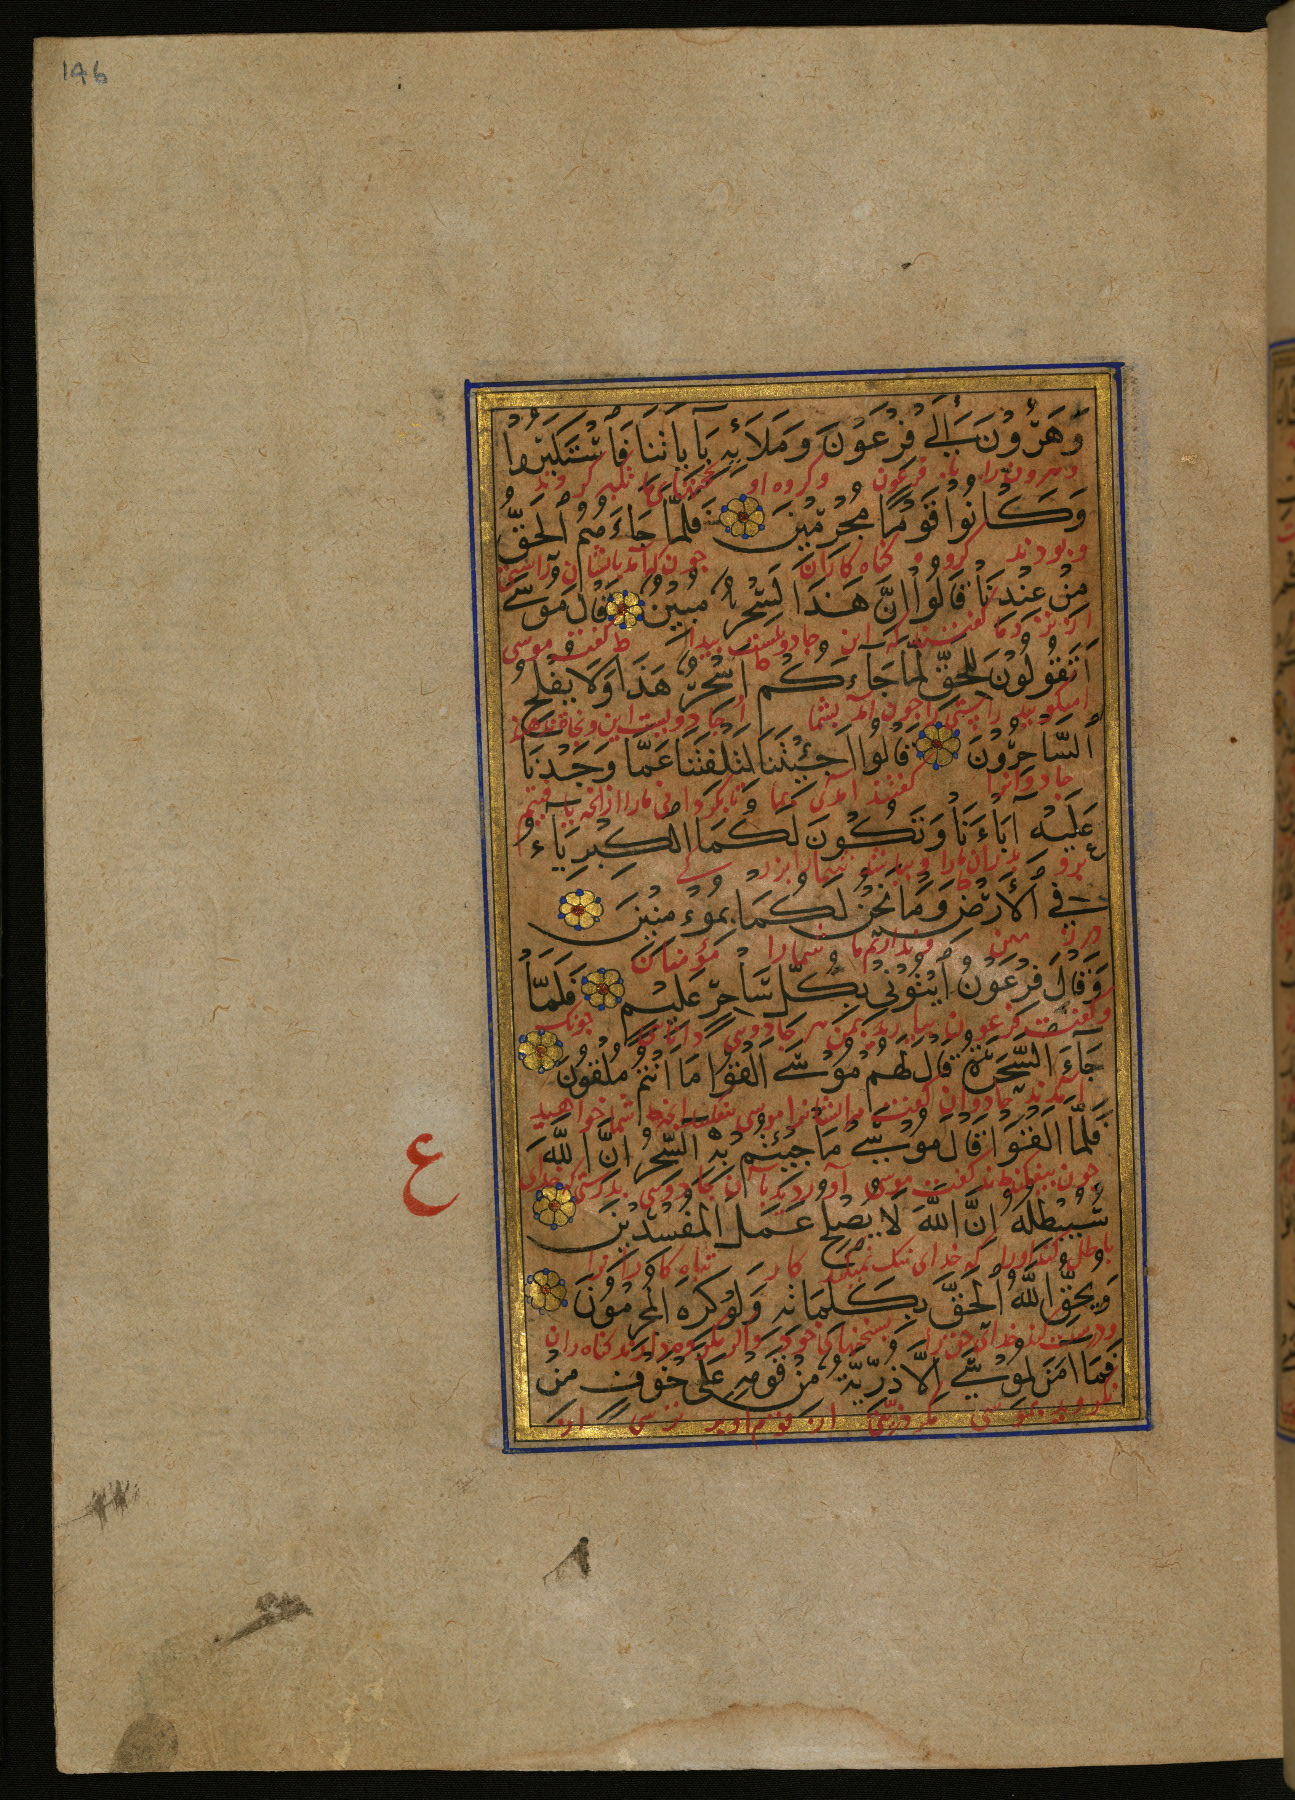 146
وَهَرُونَ إِلَى فِرْعَوْنَ وَمَلَائِهِ بِآيَاتِنَا فَاسْتَكْبَرُوا
وهرون را با فرعون وگروه او
وَكَانُوا قَوْمًا مُجْرِمِينَ فَلَمَّا جَاءَهُمُ الْحَقُّ
وبودند گروه گناه کاران چون که آمد بایشان
مِنْ عِنْدِنَا قَالُوا إِنَّ هَذَا لَسِحْرٌ مُبِينٌ قَالَ مُوسَى
از نزد ما گفتند که این جادویست پیدا گفت موسی
أَتَقُولُونَ لِلْحَقِّ لَمَّا جَاءَكُمْ أَسِحْرٌ هَذَا وَلَا يُفْلِحُ
میگویید چون آمد بشما جادویست این
السَّاحِرُونَ قَالُوا أَجِئْتَنَا لِتَلْفِتَنَا عَمَّا وَجَدْنَا
جادوانرا گفتند آمدی بما تا بگردانی مارا ازانچه یافتیم
عَلَيْهِ آبَاءَنَا وَتَكُونَ لَكُمَا الْكِبْرِيَاءُ
برو پدران مارا شمارا بزرگی
فِي الْأَرْضِ وَمَا نَحْنُ لَكُمَا بِمُؤْمِنِينَ
در زمین ما شمارا مؤمنان
وَقَالَ فِرْعَوْنُ ائْتُونِي بِكُلِّ سَاحِرٍ عَلِيمٍ فَلَمَّا
وگفت فرعون بیارید بمن هر جادوی دانای چونک
جَاءَ السَّحَرَةُ قَالَ لَهُمْ مُوسَى أَلْقُوا مَا أَنْتُمْ مُلْقُونَ
آمدند جادوان گفت مرایشانرا موسی شما خواهید
فَلَمَّا أَلْقَوْا قَالَ مُوسَى مَا جِئْتُمْ بِهِ السِّحْرُ إِنَّ اللَّهَ
چون بیفکندند گفت موسی آوردید بآن جادوی بدرستی که خدای
سَيُبْطِلُهُ إِنَّ اللَّهَ لَا يُصْلِحُ عَمَلَ الْمُفْسِدِينَ
باطل کند اورا که خدای نیک نمیکند کار تباه کارانرا
وَيُحِقُّ اللَّهُ الْحَقَّ بِكَلِمَاتِهِ وَلَوْ كَرِهَ الْمُجْرِمُونَ
خدای بسخنهای خود گناه کاران
ع
فَمَا آمَنَ لِمُوسَى إِلَّا ذُرِّيَّةٌ مِنْ قَوْمِهِ عَلَى خَوْفٍ مِنْ
بموسی مگر از قوم او بر ترسی از